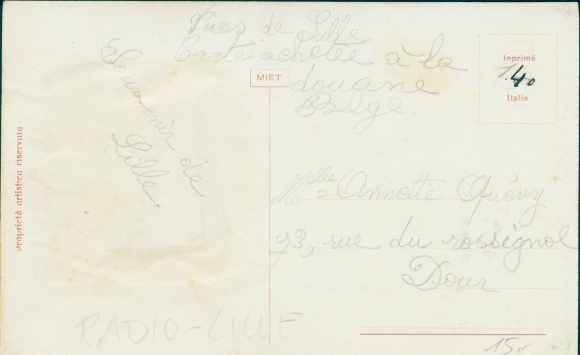 Vues de Lille
Carte achetée à la
douane
Belge
Souvenir de
Lille
MIET
Inprimé
1.40
Italie
Proprietà artistica riservata
Mlle Annette Quévy
93, rue du rossignol
Dour
RADIO-LILLE
15,